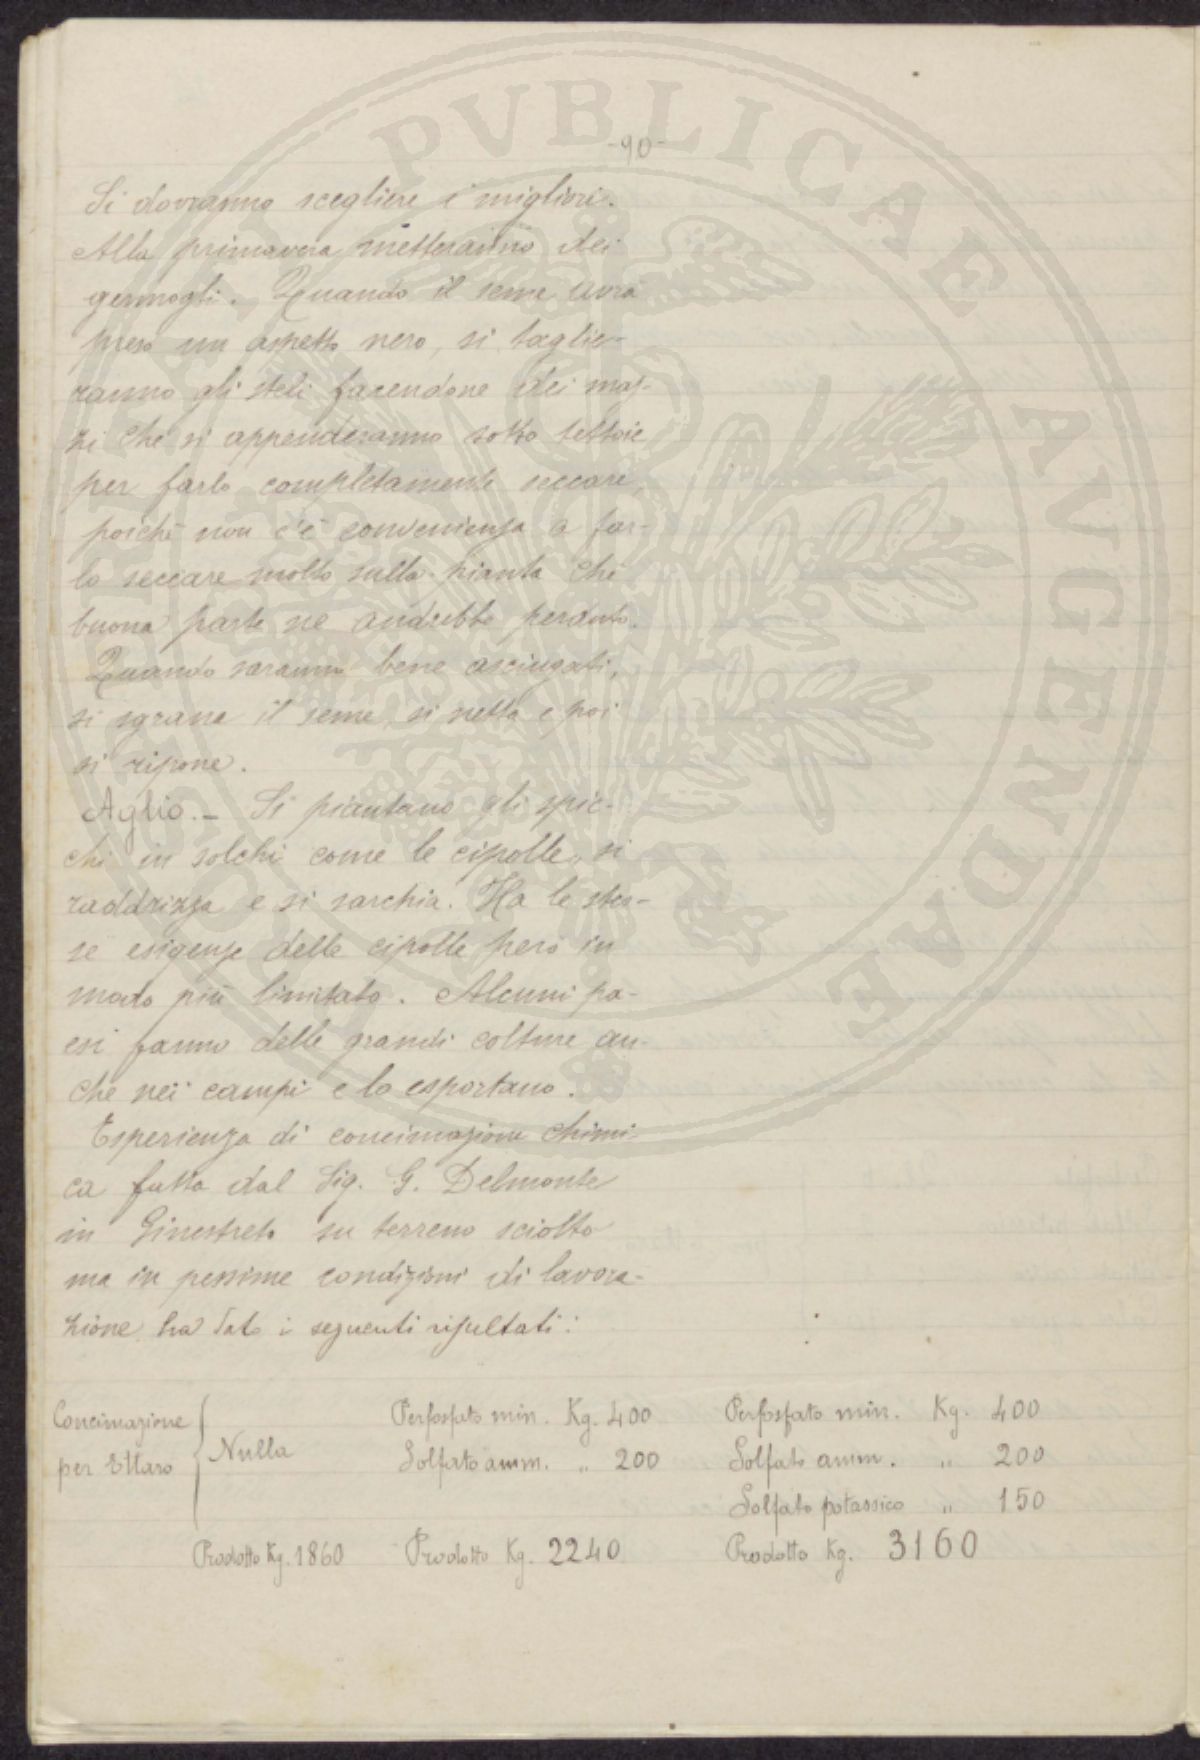 -90-
Si dovranno scegliere i migliori.
Alla primavera metteranno dei
germogli. Quando il seme avrà
preso un aspetto nero, si taglie-
ranno gli steli facendone dei maz-
zi che si appenderanno sotto tettoie
per farlo completamente seccare,
poichè non c'è convenienza a far-
lo seccare molto sulla pianta chè
buona parte ne andrebbe perduto.
Quando saranno bene asciugati,
si sgrana il seme, si netta e poi
si ripone.
Aglio. - Si piantano gli spic-
chi in solchi come le cipolle, si
raddrizza e si sarchia. Ha le stes-
se esigenze delle cipolle però in
modo più limitato. Alcuni pa-
esi fanno delle grandi colture an-
che nei campi e lo esportano.
Esperienza di concimazione chimi-
ca fatta dal Sig. G. Delmonte
in Ginestreto su terreno sciolto
ma in pessime condizioni di lavora-
zione ha dato i seguenti risultati:
Concimazione Perfosfato min. Kg. 400 Perfosfato min. Kg. 400
per Ettaro Nulla Solfato amm. „ 200 Solfato amm. „ 200
Solfato potassico „ 150
Prodotto Kg. 1860 Prodotto Kg. 2240 Prodotto Kg. 3160
PVBLICAE AVGENDAE